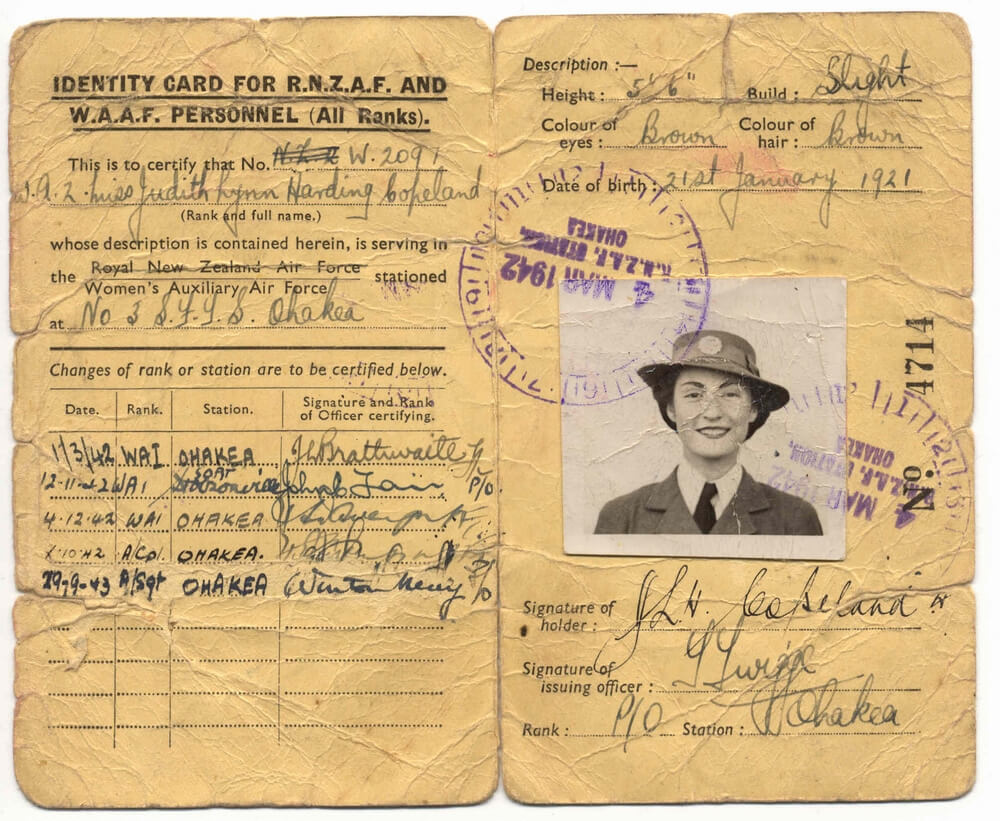 IDENTITY CARD FOR R.N.Z.A.F. AND
W.A.A.F. PERSONNEL (All Ranks).
This is to certify that No. N.Z.2 W.2091
Miss Judith Lynn Harding Copeland
(Rank and full name.)
whose description is contained herein, is serving in
the Royal New Zealand Air Force stationed
Women's Auxiliary Air Force
at No 3 S.F.T.S. Ohakea
Changes of rank or station are to be certified below.
Date. Rank. Station. Signature and Rank of Officer certifying.
1/3/42 WAI OHAKEA Brathwaite
12-11-42 WAI
4.12.42 WAI OHAKEA
A/Cpl. OHAKEA.
29-9-43 A/Sgt OHAKEA
Description :—
Height : 5' 6" Build : Slight
Colour of eyes : Brown Colour of hair : Brown
Date of birth : 21st January 1921
R.N.Z.A.F. STATION,
OHAKEA
4 MAR 1942
R.N.Z.A.F. STATION,
OHAKEA
4 MAR 1942
No 4714
Signature of holder : J L H. Copeland
Signature of issuing officer :
Rank : P/O Station : Ohakea